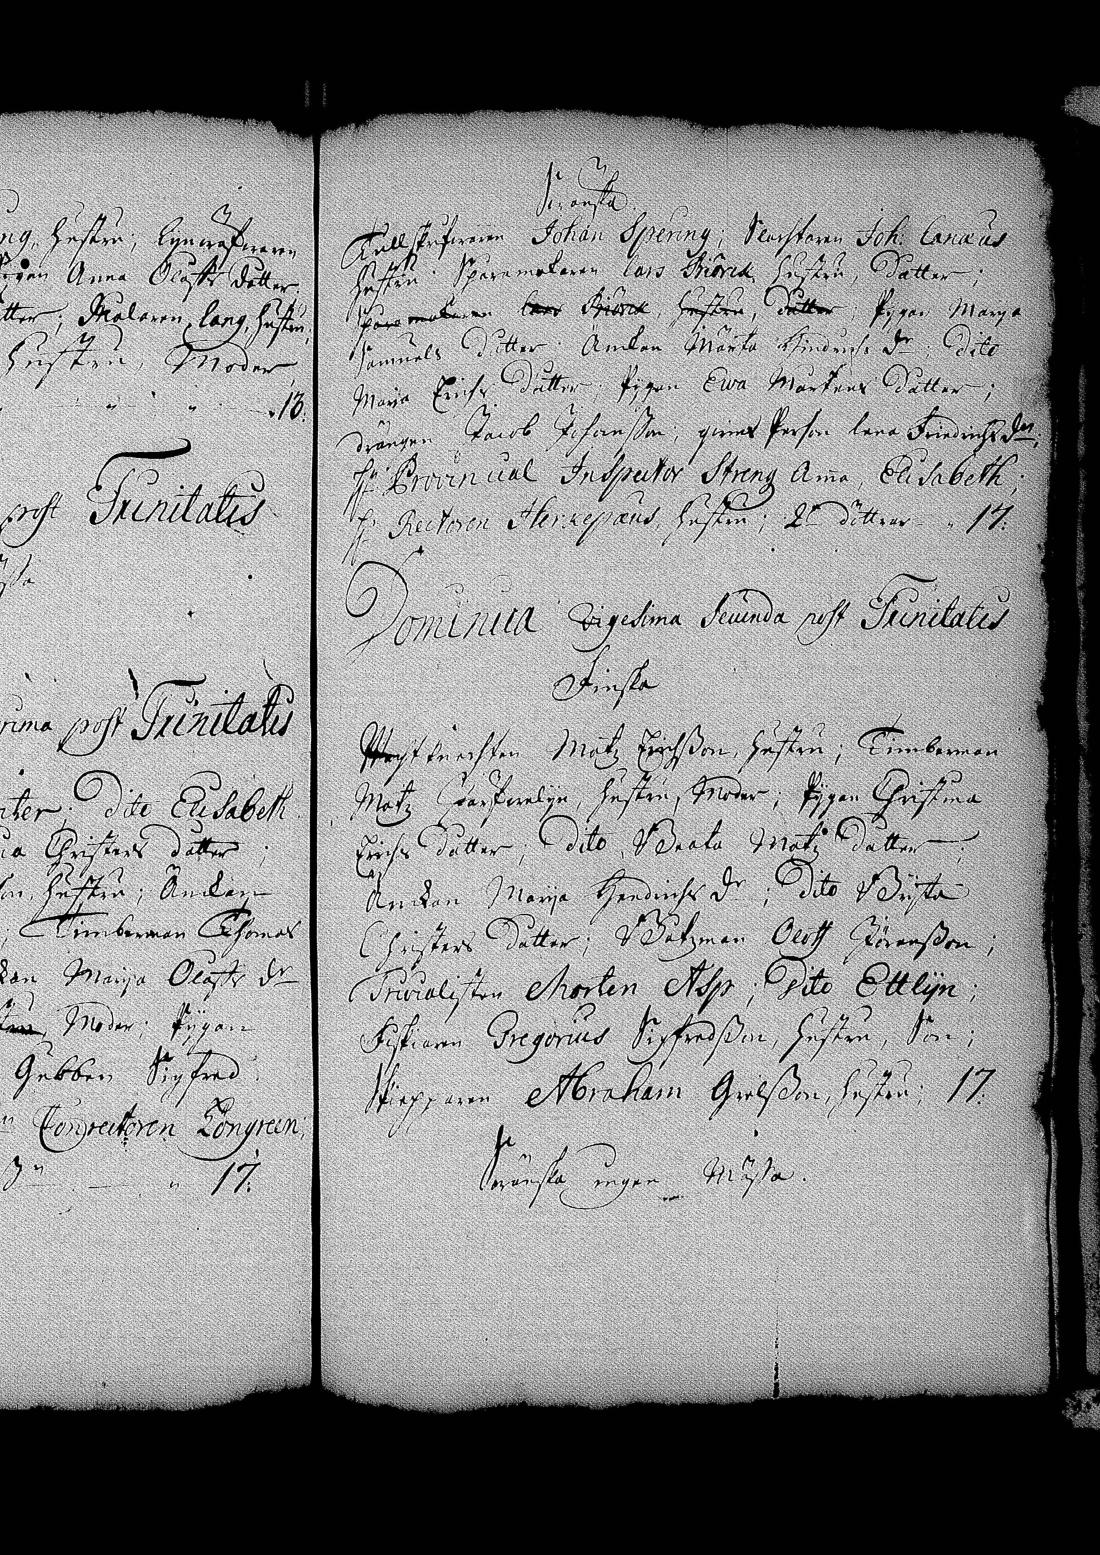 ng, hustru;
Anna Oloffs datter
tter; Målaren Lang, hustru;
Hustru, Moder
13.
post Trinitatis
rima post Trinitatis
dito Elisabeth
Christers datter;
hustru; Änckan
; Timberman Thomas
kan Marija Oloffs dr
Moder: Pijgan
Gubben Sigfred
Conrectoren Löngreen;
17.
Swenska.
Tullskrifwaren Johan Spering; Joh. Canæus
hustru: Sporemakaren Lars Biörck, hustru, Datter;
Sporemakaren Lars Biörck, hustru, datter Pigan Marija
Samuels datter: Änckan Märta Hindrichs dr; dito
Maria Erichs datter; Pijgan Ewa Mårtens datter;
drängen Jacob Johansson; Person Lena Friedrichs dr;
Hr Provincial Inspector Streng Anna, Elisabeth;
Hr Rectoren Herkepæus, hustru; 2 döttrar 17.
Dominica Vigesima Secunda post Trinitatis
Finska
Matz Erichsson, hustru; Timberman
Matz hustru, Moder; Pijgan Christina
Erichs datter; dito Beata Matz datter;
Änckan Marija Hendrichs dr; dito Brijta
Christers datter; Båtzman Oloff Göransson;
Trivialisten Morten Asp; Dito Ettlijn;
Fiskiaren Gregorius Sigfredsson, hustru, Son;
Skiepparen Abraham Grelsson, hustru; 17.
Swänska ingen Mässa.